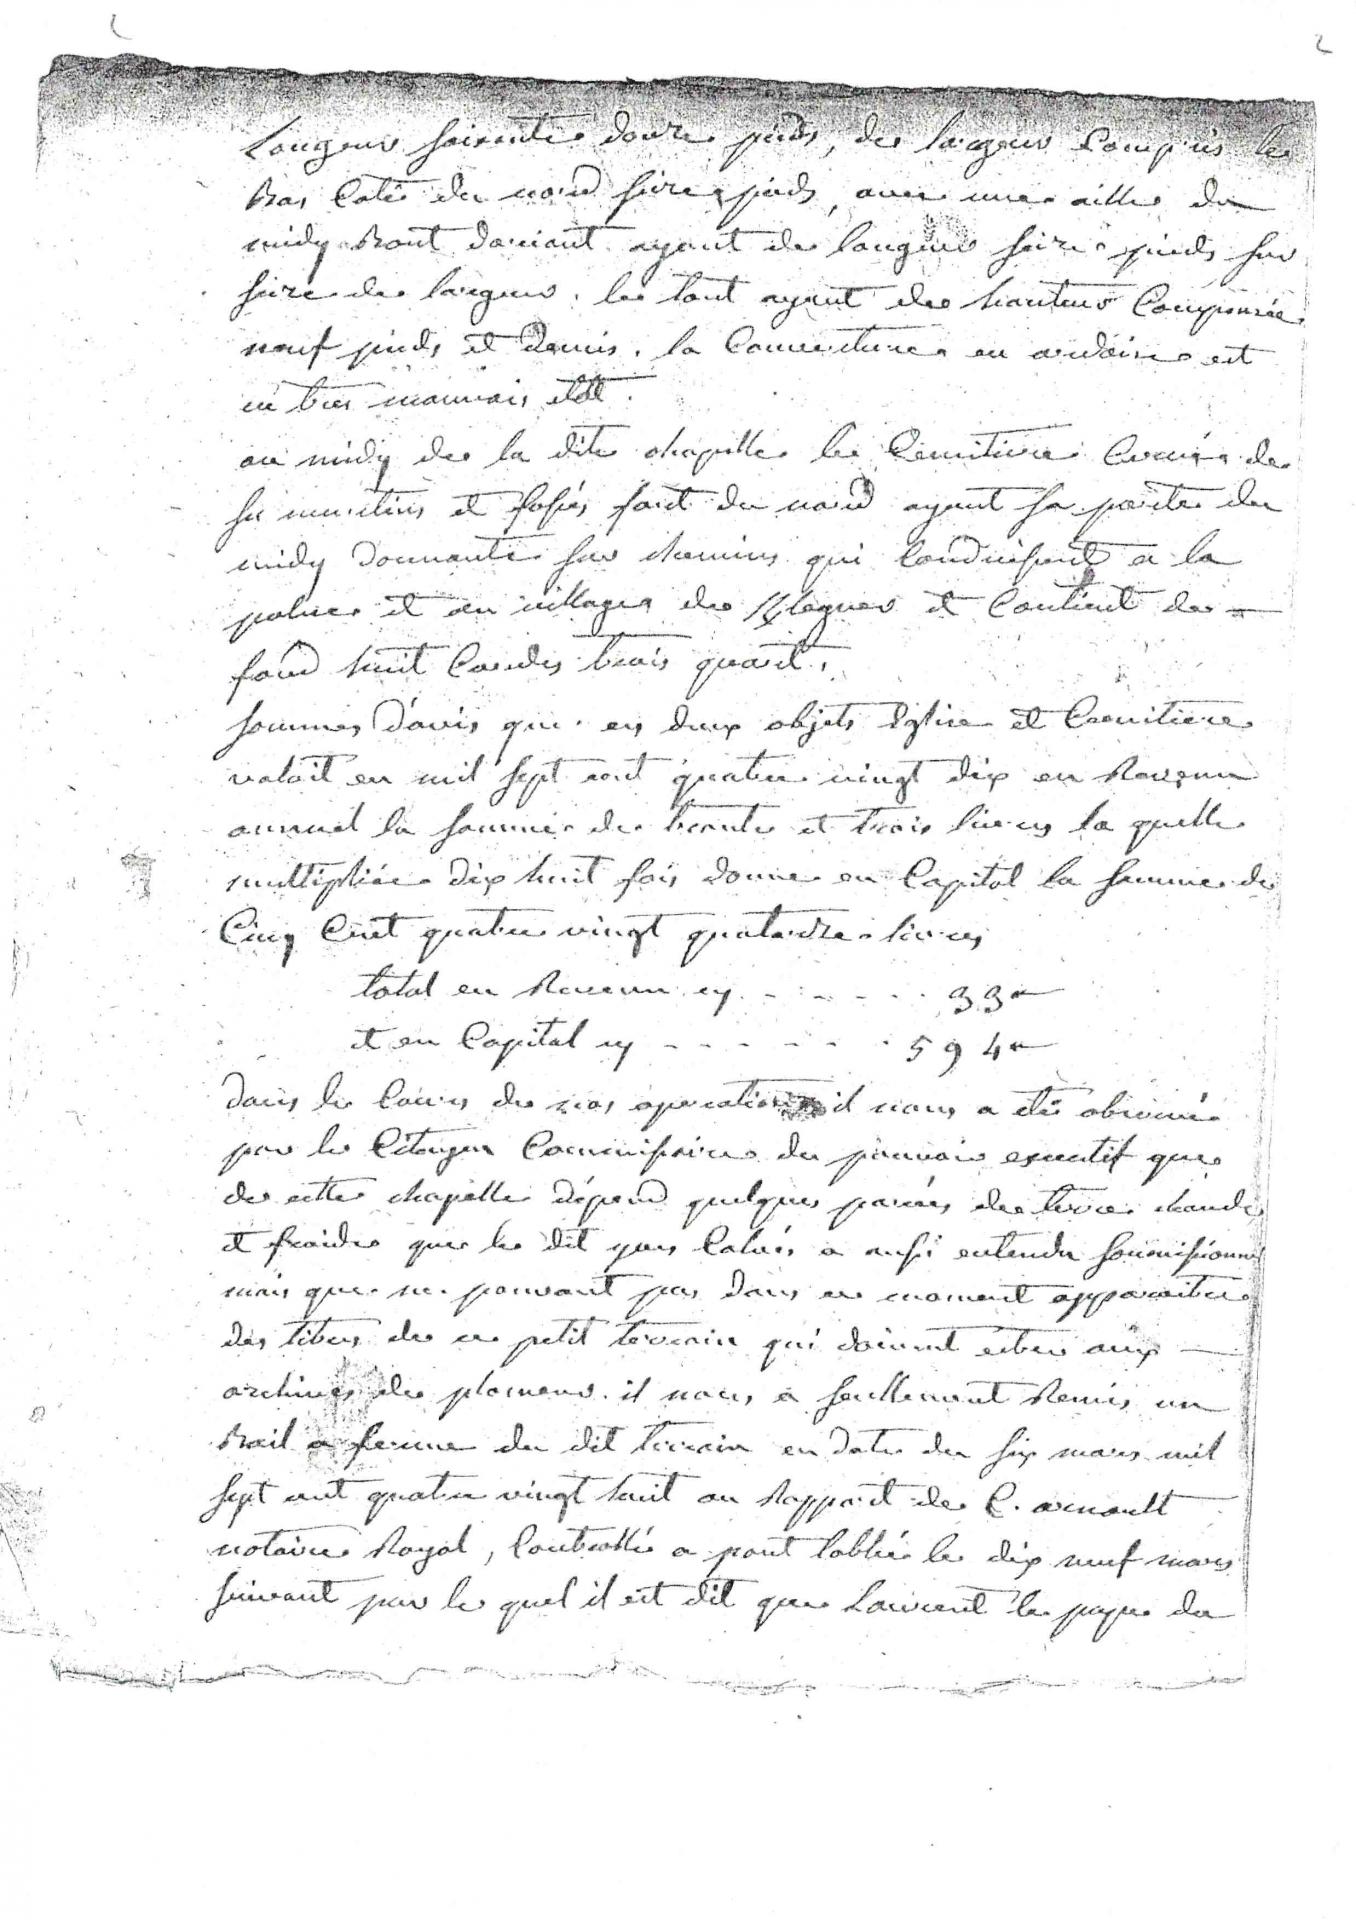 2
Longeur soixante douze pieds, de largeur Compris le
Bas Coté du nord seize pieds, avec une aille du
midy Bout donnant ayant de longeur seize pieds sur
seize de largeur. le tout ayant de hauteur Compensée
neuf pieds et demis. la Couverture en ardoise est
en tres mauvais état.
au midy de la dite chapelle le Cemitiere Cerné de
ses muretins et fossés fort du nord ayant sa porte du
midy donnante sur chemins qui Conduisent a la
palue et au village de et Contient de
fond huit Cordes trois quart.
sommes d'avis que ces deux objets Eglise et Cemitiere
valait en mil sept cent quatre vingt dix en Revenu
annuel la somme de trente et trois livres la quelle
multipliée dix huit fois donne en Capital la somme de
Cinq Cent quatre vingt quatorze livres
total en Revenu cy - - - - - - 33
et en Capital cy - - - - - - 594
Dans le Cours de nos operations il nous a été observé
par le Citoyen Commissaire du pouvoir executif que
de cette chapelle dépend quelques parées de terre chaude
et froide que le dit yves Calvés a aussi entendu soumissionner
mais que ne pouvant pas dans ce moment apparaitre
des titres de ce petit terrain qui doivent estre aux
archives de plomeur. il nous a seullement Remis un
Bail a ferme du dit terrain en date du six mars mil
sept cent quatre vingt huit au Rapport de C. arnoult
notaire Royal, Controllé a pont labbé le dix neuf mars
suivant par le quel il est dit que Laurent le pape du